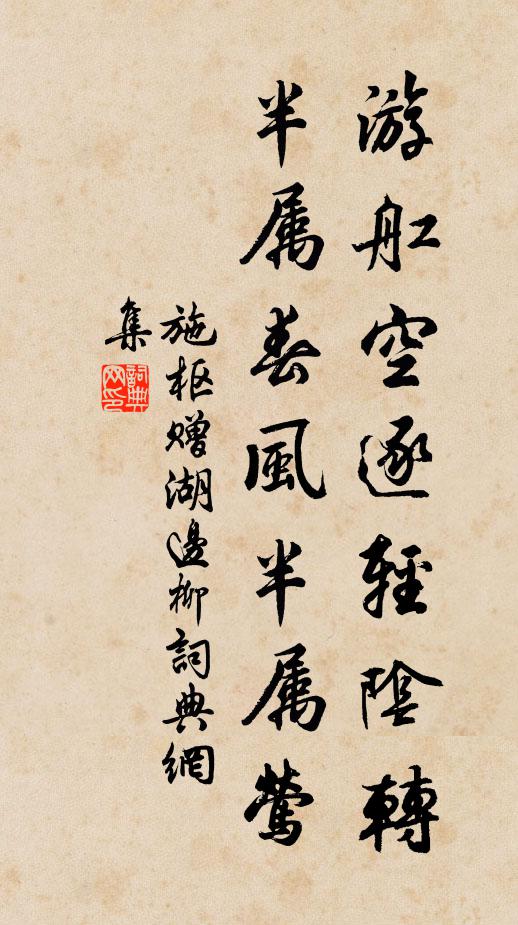 游舡空逐輕陰轉
半属春風半属鶯
施枢赠湖邊柳詞典網
集
詞典網印